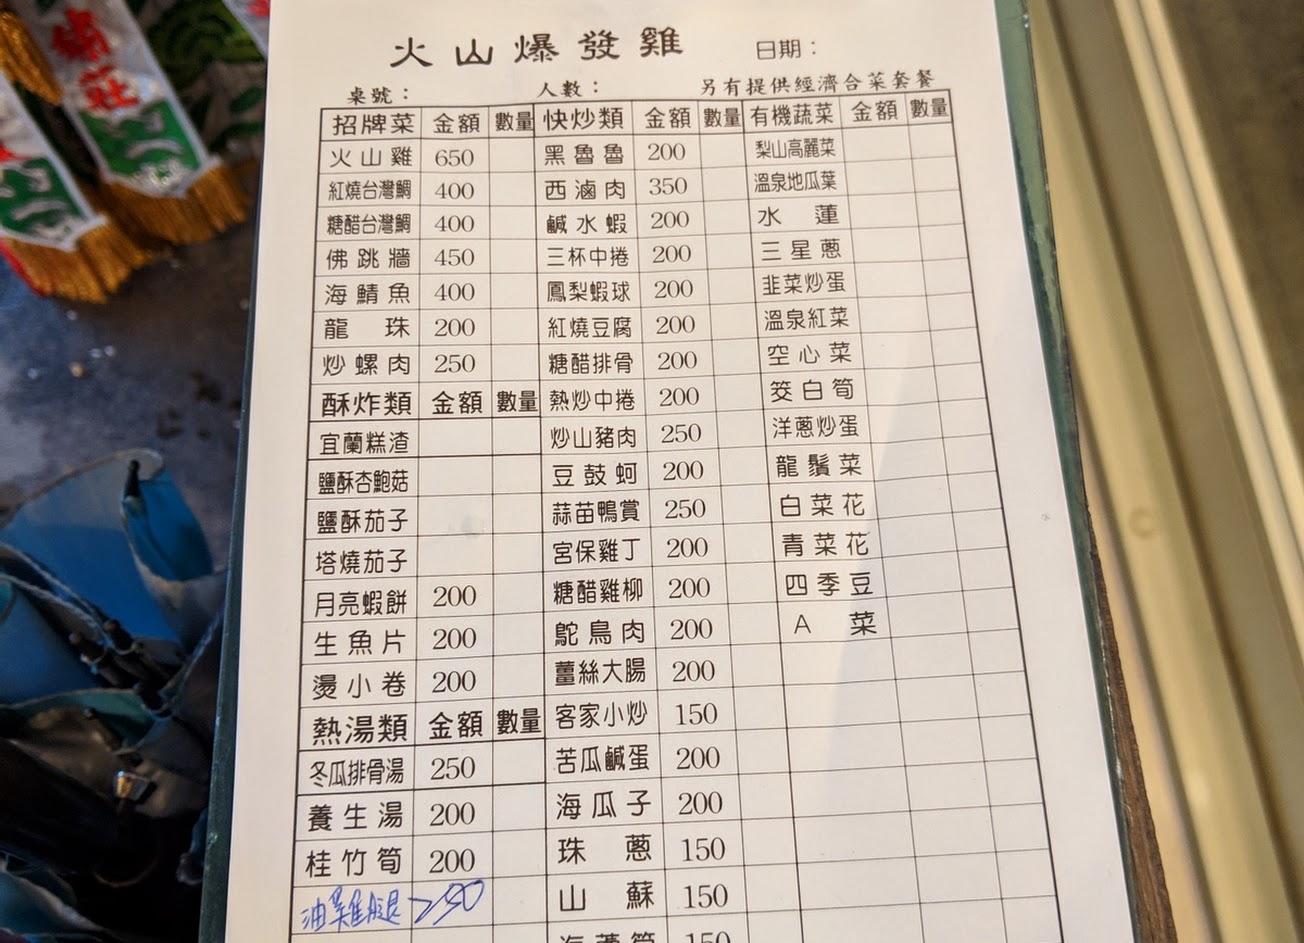 火山爆發雞 日期：
桌號： 人數： 另有提供經濟合菜套餐
招牌菜 金額 數量 快炒類 金額 數量 有機蔬菜 金額 數量
火山雞 650 黑魯魯 200 梨山高麗菜
紅燒台灣鯛 400 西滷肉 350 溫泉地瓜葉
糖醋台灣鯛 400 鹹水蝦 200 水蓮
佛跳牆 450 三杯中捲 200 三星蔥
海鯖魚 400 鳳梨蝦球 200 韭菜炒蛋
龍珠 200 紅燒豆腐 200 溫泉紅菜
炒螺肉 250 糖醋排骨 200 空心菜
酥炸類 金額 數量 熱炒中捲 200 筊白筍
宜蘭糕渣 炒山豬肉 250 洋蔥炒蛋
鹽酥杏鮑菇 豆鼓蚵 200 龍鬚菜
鹽酥茄子 蒜苗鴨賞 250 白菜花
塔燒茄子 宮保雞丁 200 青菜花
月亮蝦餅 200 糖醋雞柳 200 四季豆
生魚片 200 鴕鳥肉 200 A菜
燙小卷 200 薑絲大腸 200
熱湯類 金額 數量 客家小炒 150
冬瓜排骨湯 250 苦瓜鹹蛋 200
養生湯 200 海瓜子 200
桂竹筍 200 珠蔥 150
油雞腿 250 山蘇 150
150